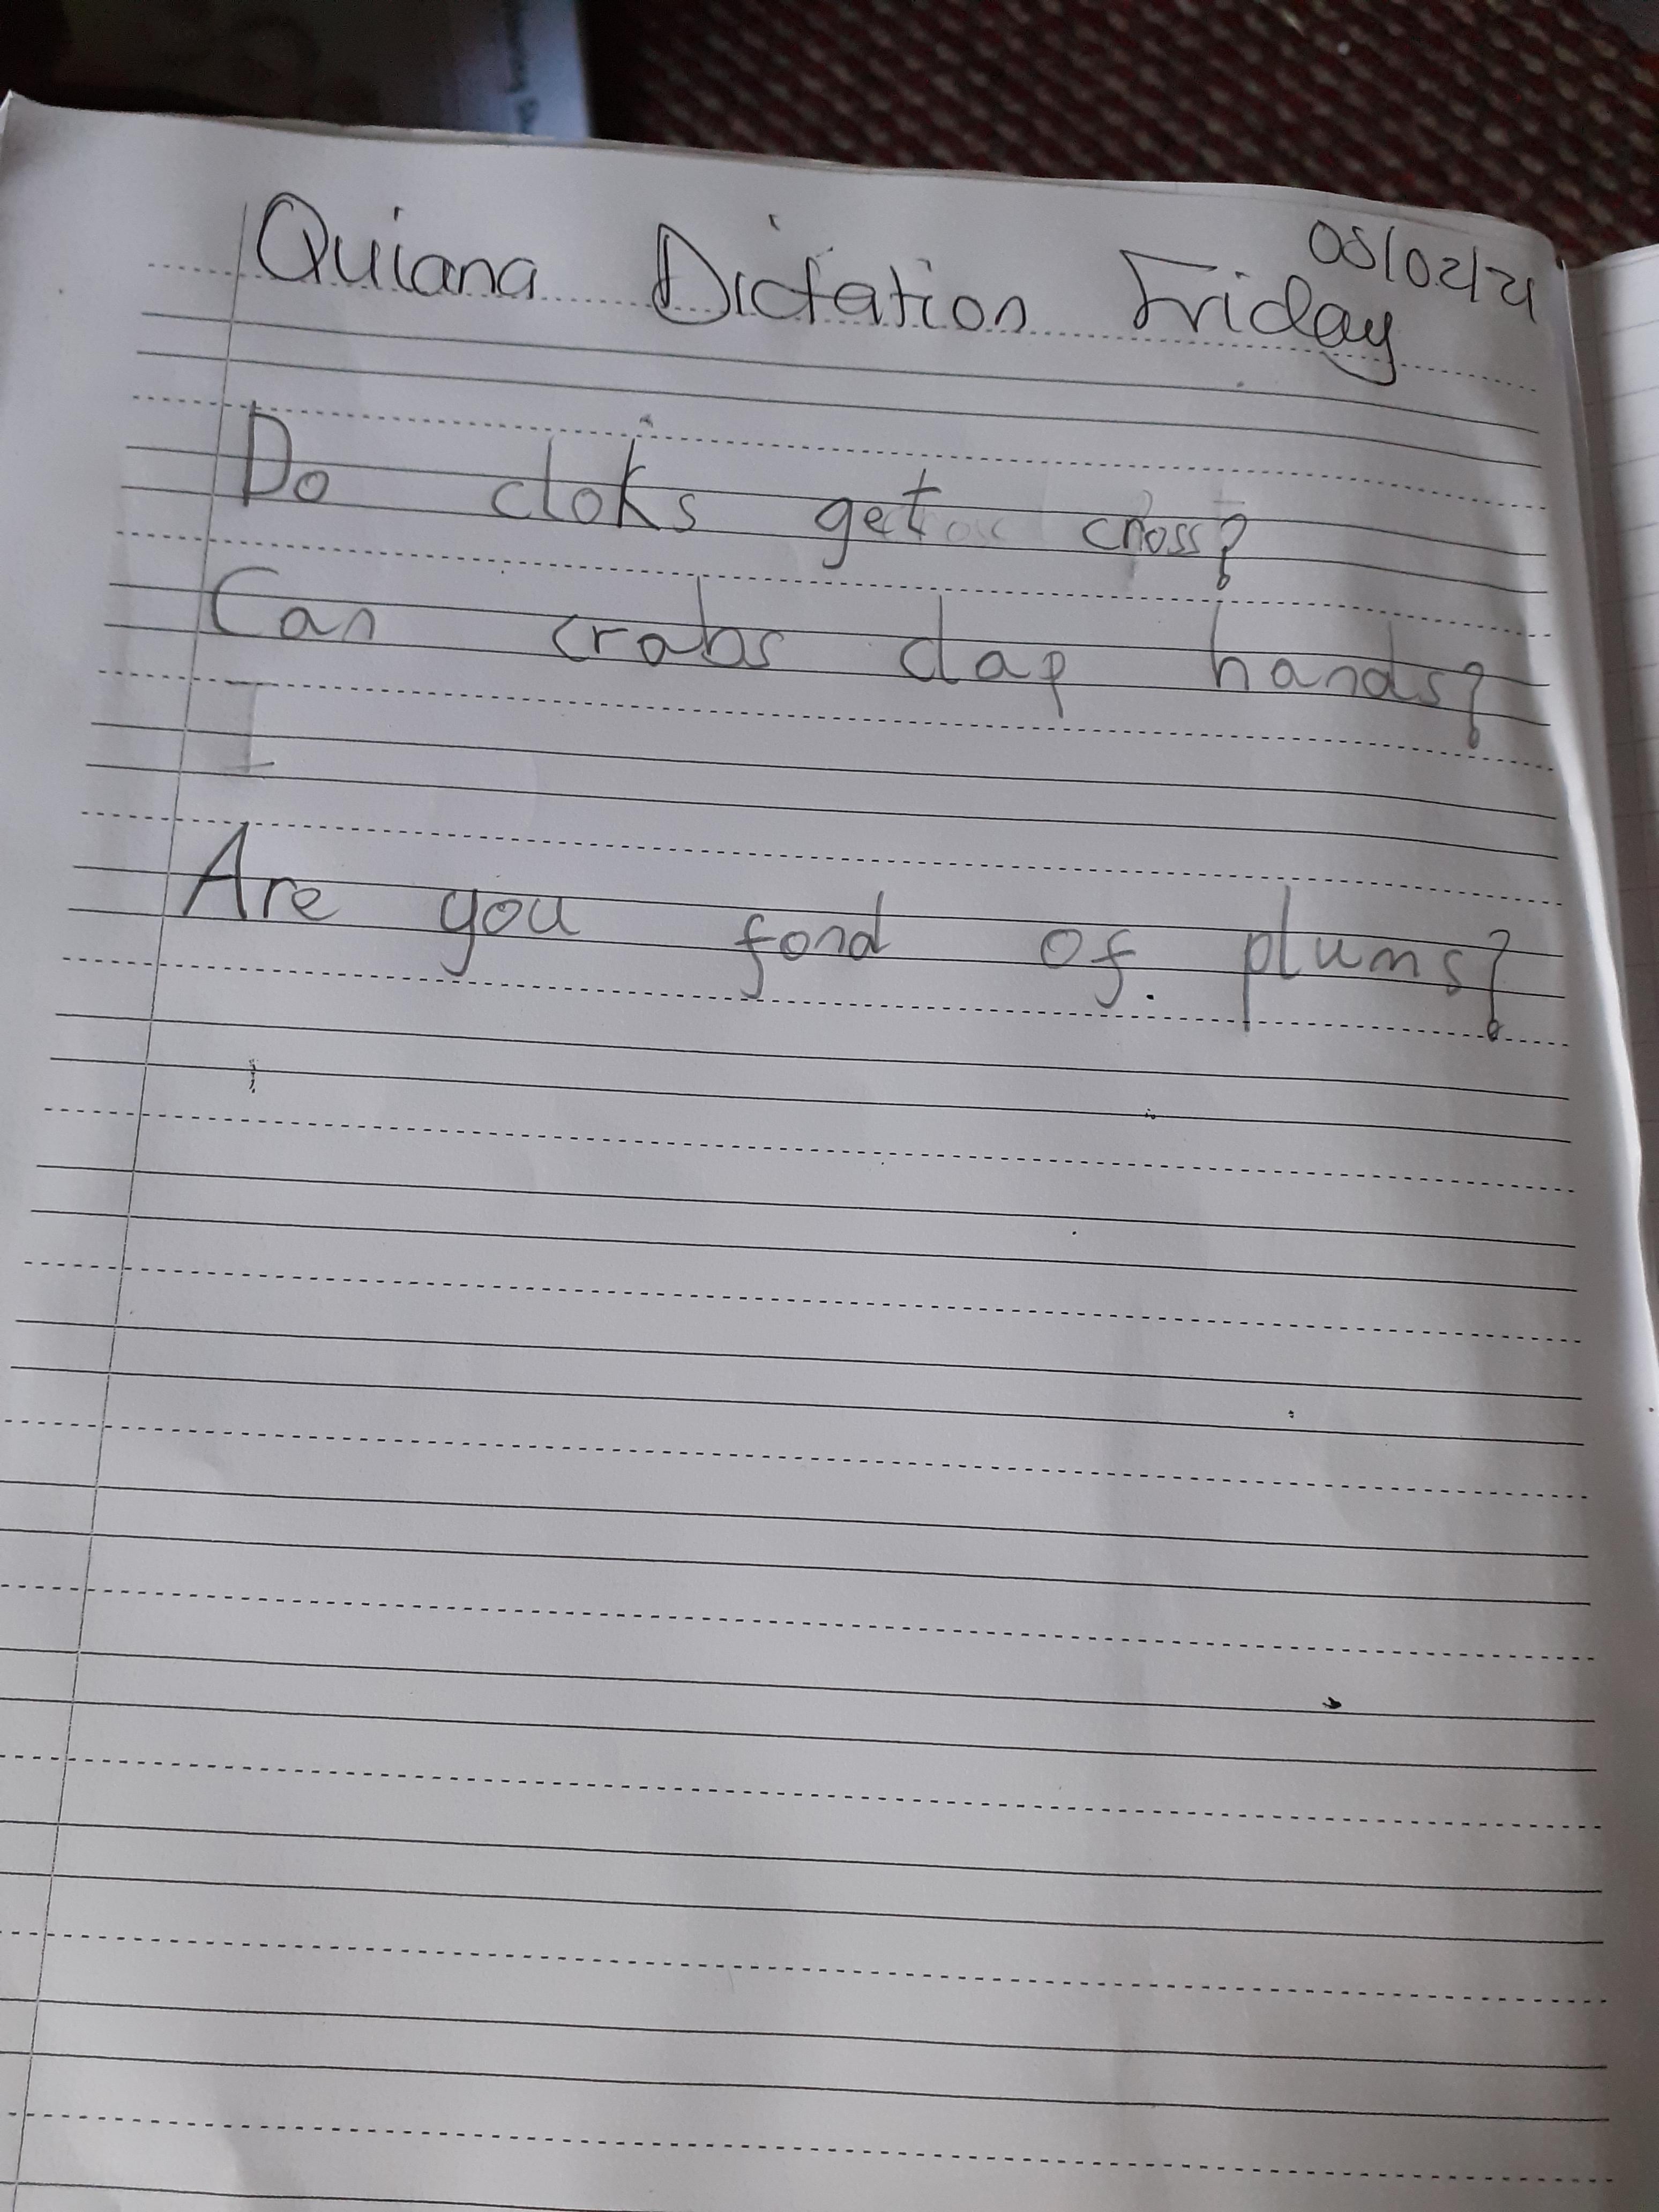 Quiana Dictation Friday 05/02/21
Do cloks get cross?
Can crabs clap hands?
I
Are you fond of. plums?